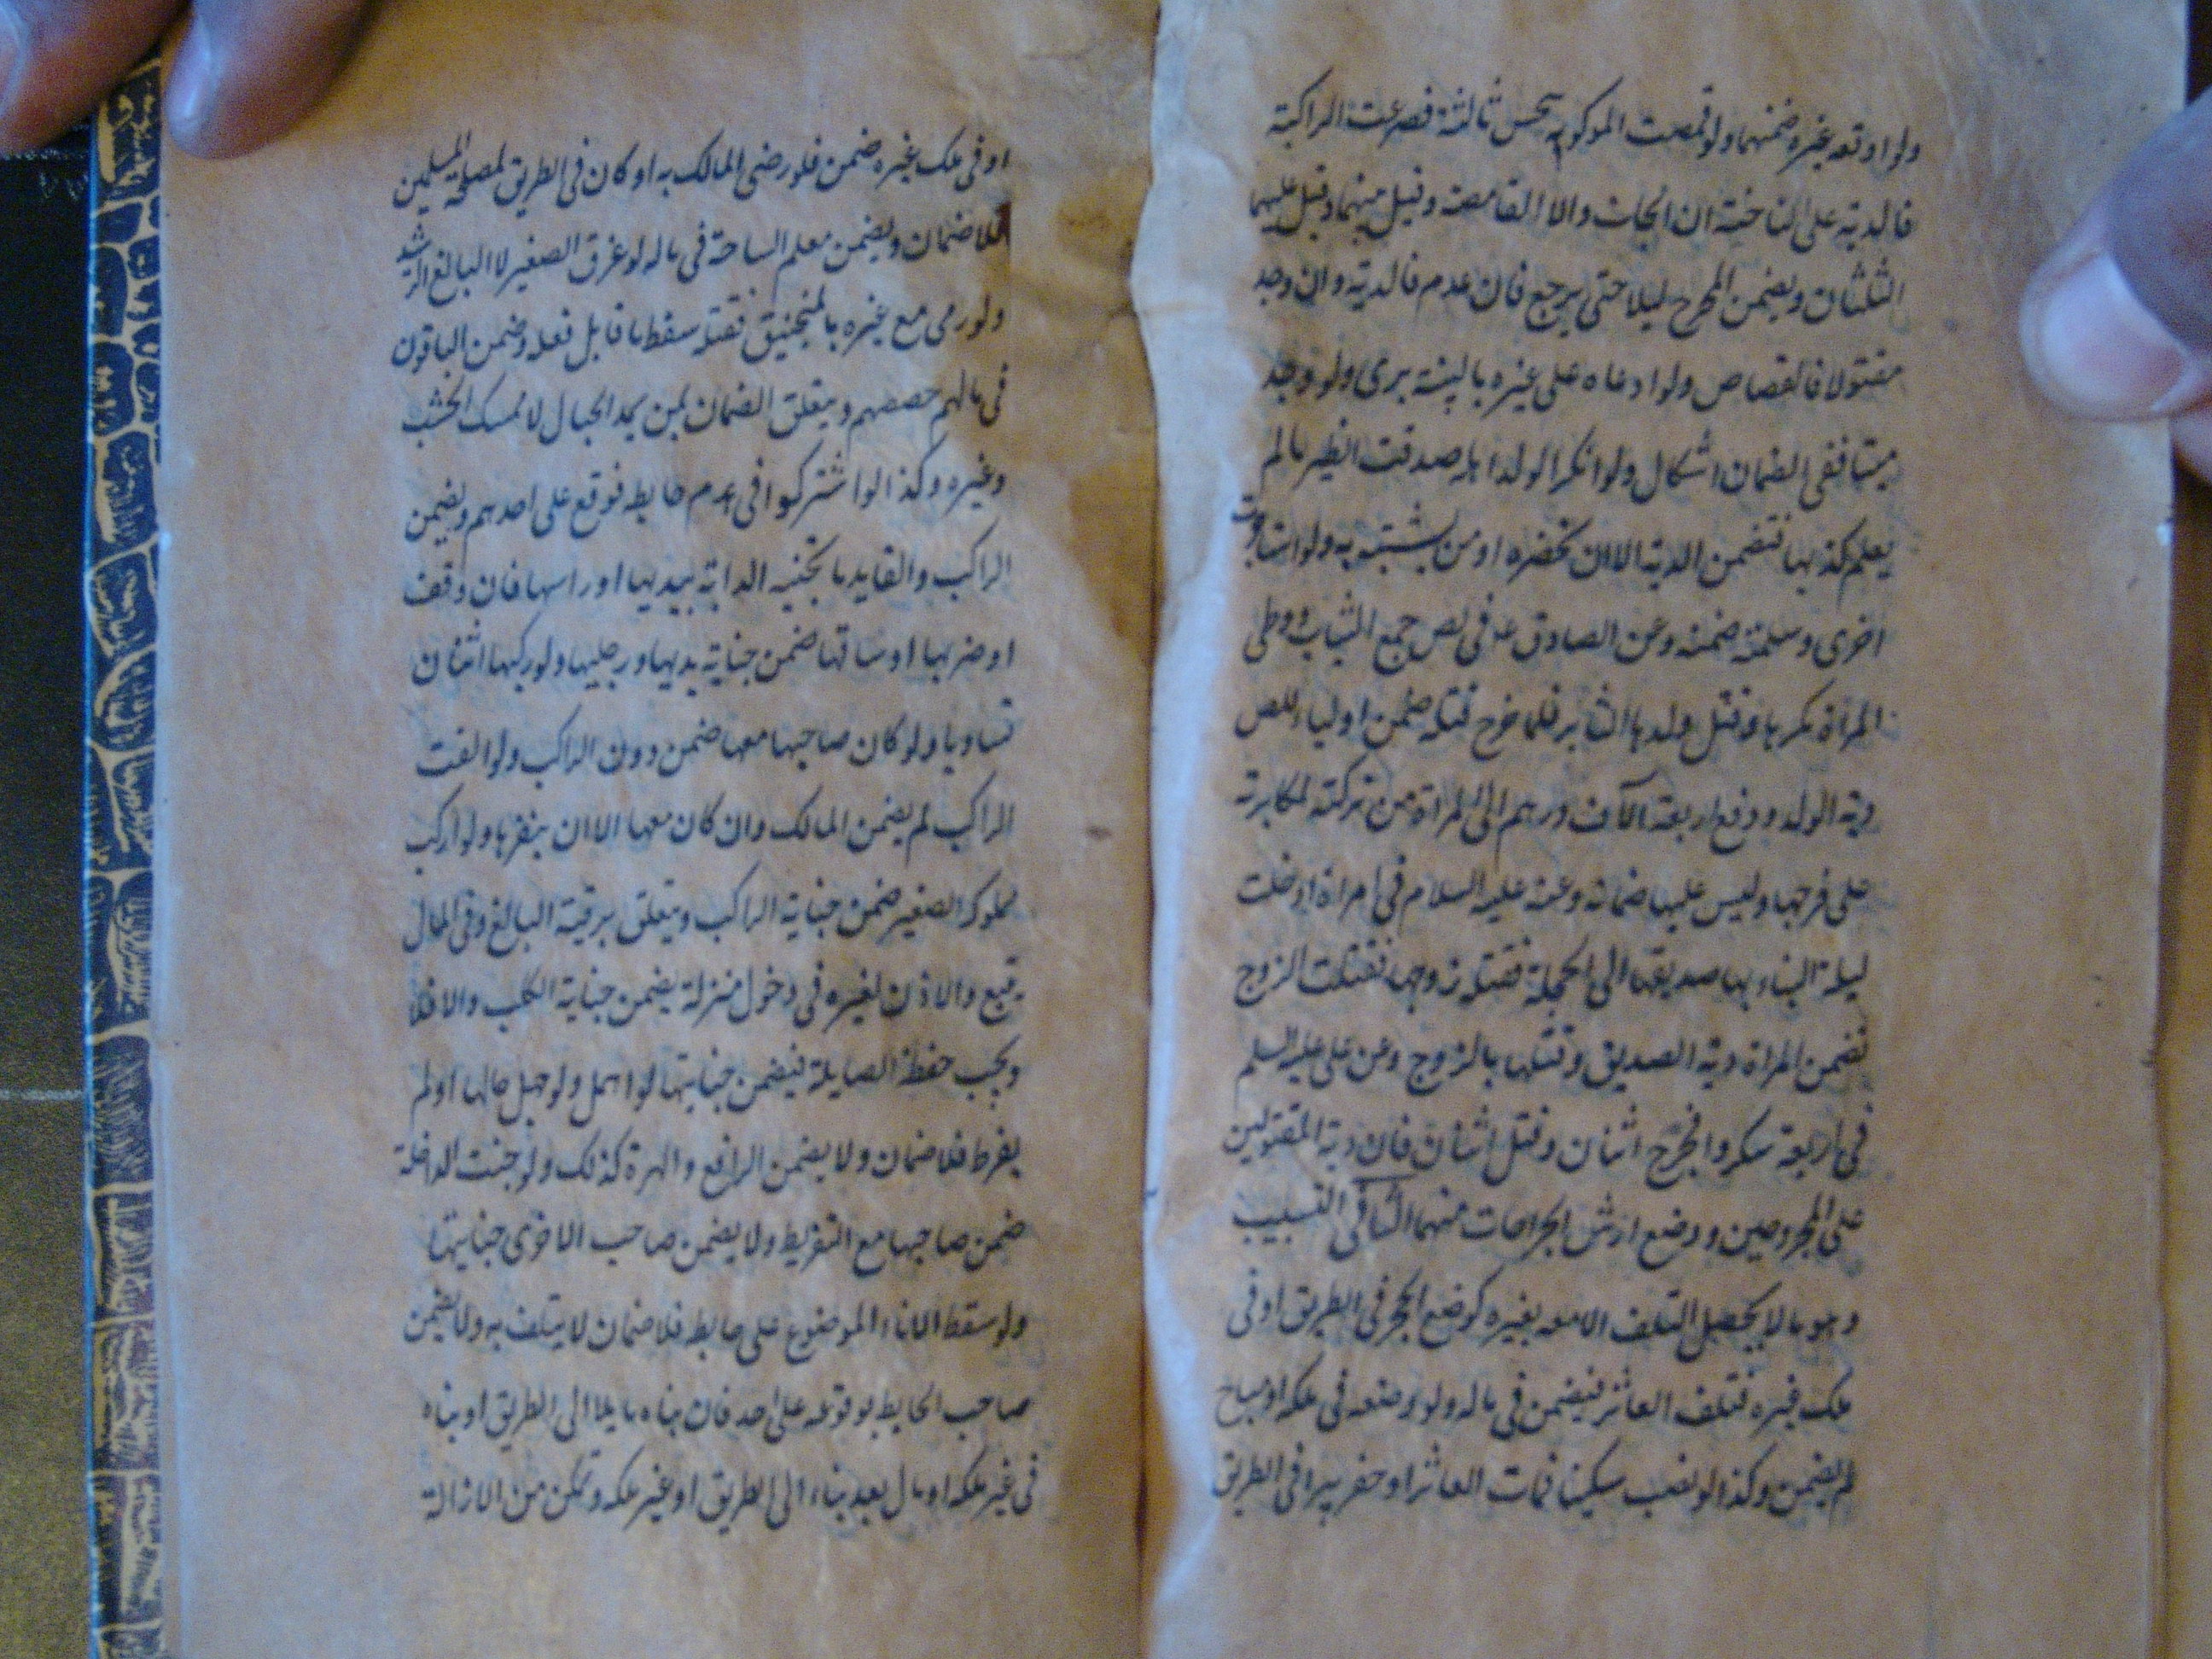 ولو اوقعه غيره ضمنهما ولو قمصت المركوبة بنخس ثالثة فصرعت الراكبة
فالدية على الناخسة ان الجات والا القامصة وقيل بينهما وقيل عليهما
الثلثان ويضمن المخرج ليلا حتى يرجع فان عدم فالدية وان وجد
مقتولا فالقصاص ولو ادعاه على غيره بالبينة برى ولو وجد
ميتا ففى الضمان اشكال ولو انكر الولد اهله صدقت الظير ما لم
يعلم كذبها فتضمن الدية الا ان تحضره او من يشتبه به ولو استاجرت
اخرى وسلمته ضمنته وعن الصادق ع فى لص جمع الثياب ووطى
المراة مكرها وقتل ولدها الثاير فلما خرج قتلته ضمن اولياء اللص
دية الولد ودفع اربعة آلاف درهم الى المراة من تركته لمكابرته
على فرجها وليس عليها ضمانه وعنه عليه السلام فى امراة ادخلت
ليلة البناء بها صديقها الى الحجلة فقتله زوجها فقتلت الزوج
تضمن المراة دية الصديق وقتلها بالزوج وعن على عليه السلم
فى اربعة سكروا فجرح اثنان وقتل اثنان فان دية المقتولين
على المجروحين ووضع ارش الجراحات منهما الثانى التسبيب
وهو ما لا يحصل التلف الا معه بغيره كوضع الحجر فى الطريق او فى
ملك غيره فتلف العاثر فيضمن فى ماله ولو وضعه فى ملكه او مباح
لم يضمن وكذا لو نصب سكينا فمات العاثر او حفر بيرا فى الطريق
او فى ملك غيره ضمن فلو رضى المالك به او كان فى الطريق لمصلحة المسلمين
فلا ضمان ويضمن معلم السباحة فى ماله لو غرق الصغير لا البالغ الرشيد
ولو رمى مع غيره بالمنجنيق فقتله سقط ما قابل فعله وضمن الباقون
فى مالهم حصصهم ويتعلق الضمان بمن يمد الحبال لا ممسك الخشب
وغيره وكذا لو اشتركوا فى هدم حايط فوقع على احدهم ويضمن
الراكب والقايد ما تجنيه الدابة بيديها او راسها فان وقف
او ضربها او ساقها ضمن جناية يديها ورجليها ولو ركبها اثنان
تساويا ولو كان صاحبها معها ضمن دون الراكب ولو القت
الراكب لم يضمن المالك وان كان معها الا ان ينفرها ولو اركب
مملوكه الصغير ضمن جناية الراكب ويتعلق برقبة البالغ وفى المال
يتبع والاذن لغيره فى دخول منزلة يضمن جناية الكلب والا فلا
ويجب حفظ الصايلة فيضمن جنايتها لو اهمل ولو جهل حالها او لم
يفرط فلا ضمان ولا يضمن الدافع والهرة كذلك ولو جنت الداخلة
ضمن صاحبها مع التفريط ولا يضمن صاحب الاخرى جنايتها
ولو سقط الاناء الموضوع على حايط فلا ضمان لا يتلف به ولا يضمن
صاحب الحايط بوقوعه على احد فان بناه مايلا الى الطريق او بناه
فى غير ملكه او مال بعد بناء الى الطريق او غير ملكه وتمكن من الازالة